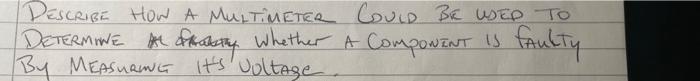 DESCRIBE HOW A MULTIMETER COULD BE USED TO
DETERMINE whether A COMPONENT IS FAULTY
By MEASURING It's Voltage.